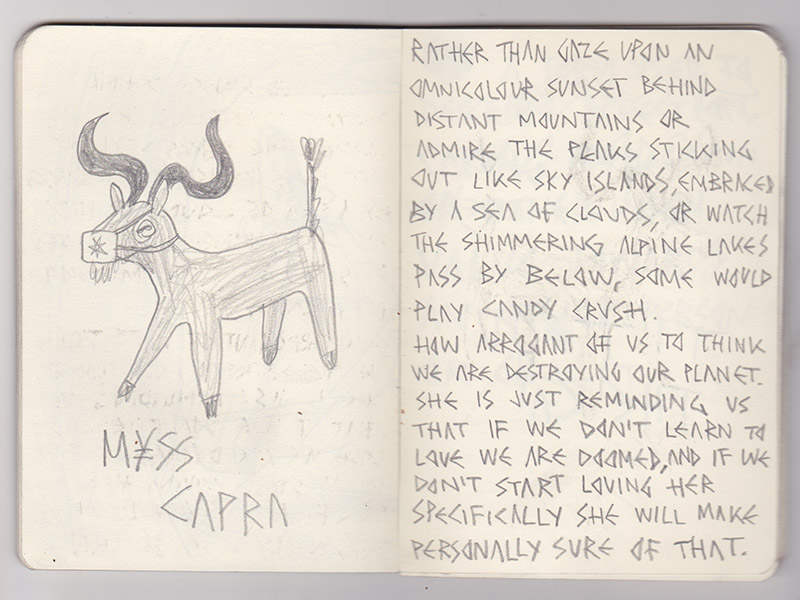 M¥SS
CAPRA
RATHER THAN GAZE UPON AN
OMNICOLOUR SUNSET BEHIND
DISTANT MOUNTAINS OR
ADMIRE THE PEAKS STICKING
OUT LIKE SKY ISLANDS, EMBRACED
BY A SEA OF CLOUDS, OR WATCH
THE SHIMMERING ALPINE LAKES
PASS BY BELOW, SOME WOULD
PLAY CANDY CRUSH.
HOW ARROGANT OF US TO THINK
WE ARE DESTROYING OUR PLANET.
SHE IS JUST REMINDING US
THAT IF WE DON'T LEARN TO
LOVE WE ARE DOOMED, AND IF WE
DON'T START LOVING HER
SPECIFICALLY SHE WILL MAKE
PERSONALLY SURE OF THAT.